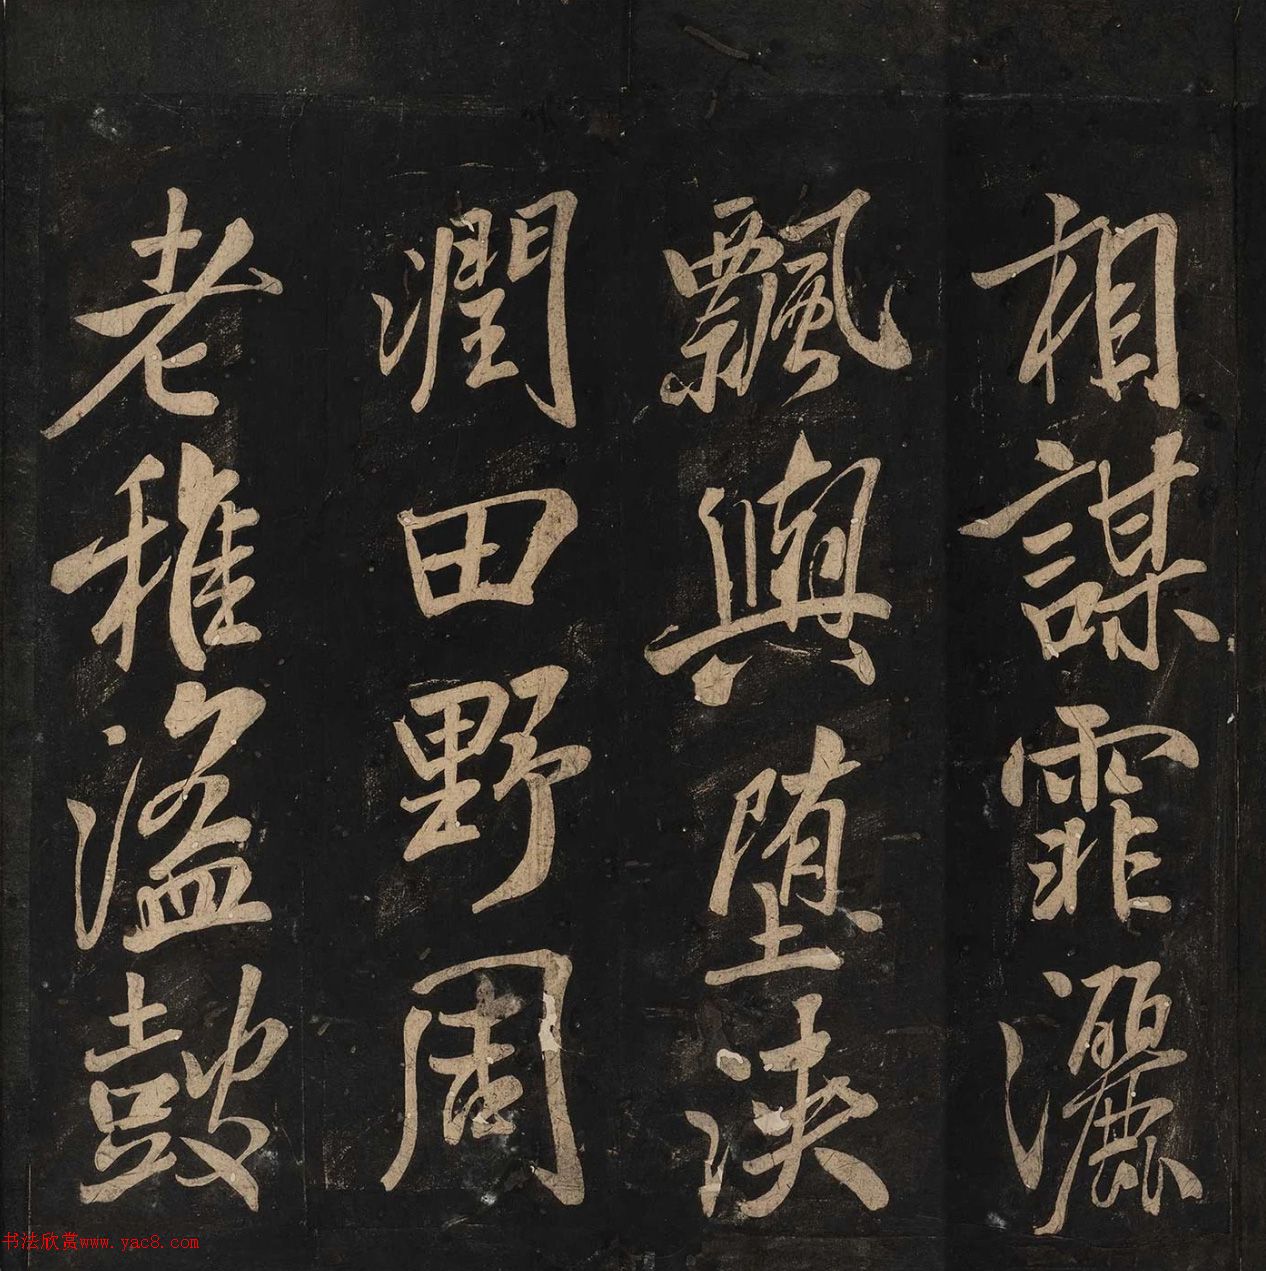 相謀霏灑
飄輿堕浹
潤田野周
老稚溢鼓
书法欣赏www.yac8.com